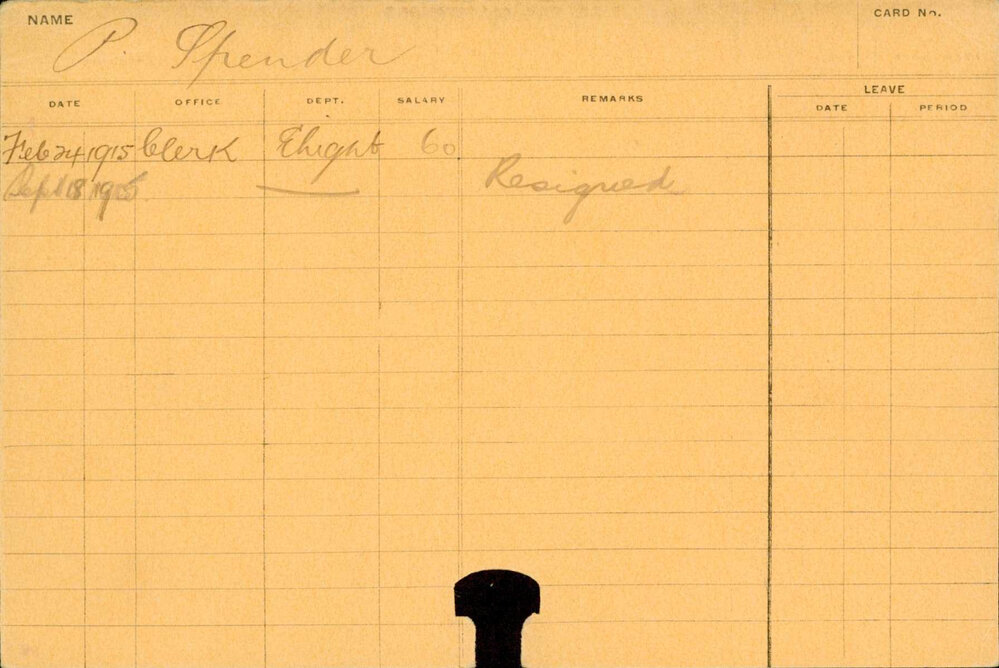 NAME P. Spender CARD No.
DATE OFFICE DEPT. SALARY REMARKS LEAVE
DATE PERIOD
Feb 24 1915 Clerk Freight 60
Sept 18 1915 Resigned